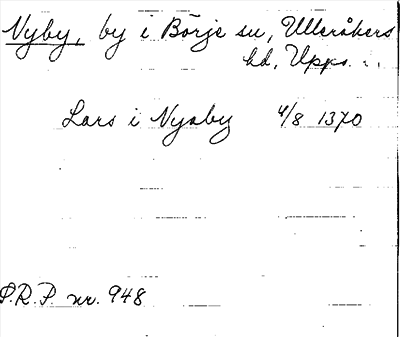 Nyby, by i Börje sn, Ulleråkers
hd, Upps.
Lars i Nyaby 4/8 1370
S.R.P. nr. 948